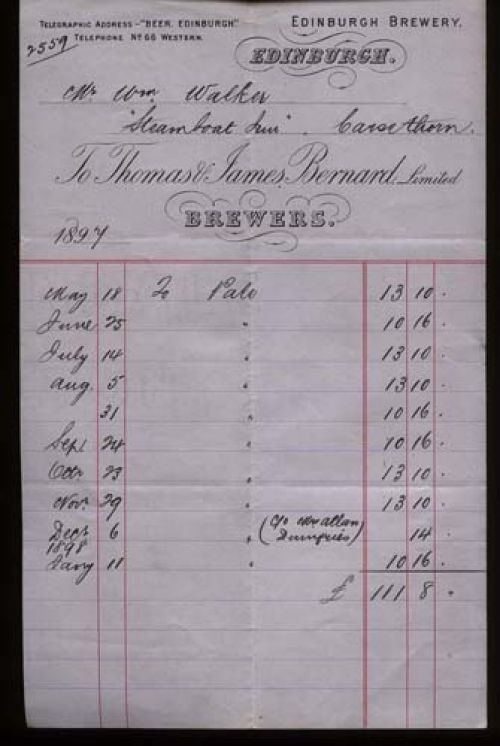 TELEGRAPHIC ADDRESS-"BEER, EDINBURGH."
EDINBURGH BREWERY.
TELEPHONE Nº 66 WESTERN.
2559
EDINBURGH.
Mr. Wm. Walker
"Steamboat Inn". Carsethorn.
To Thomas & James Bernard, Limited
BREWERS.
1897
May 18 To Pale 13 10 .
June 25 " 10 16 .
July 14 " 13 10 .
Aug. 5 " 13 10 .
31 " 10 16 .
Sept 24 " 10 16 .
Octr 23 " 13 10 .
Novr. 29 " 13 10 .
Decr 6 " (C/o Mr Allan Dumfries) 14 .
1898
Jany 11 " 10 16 .
£ 111 8 .